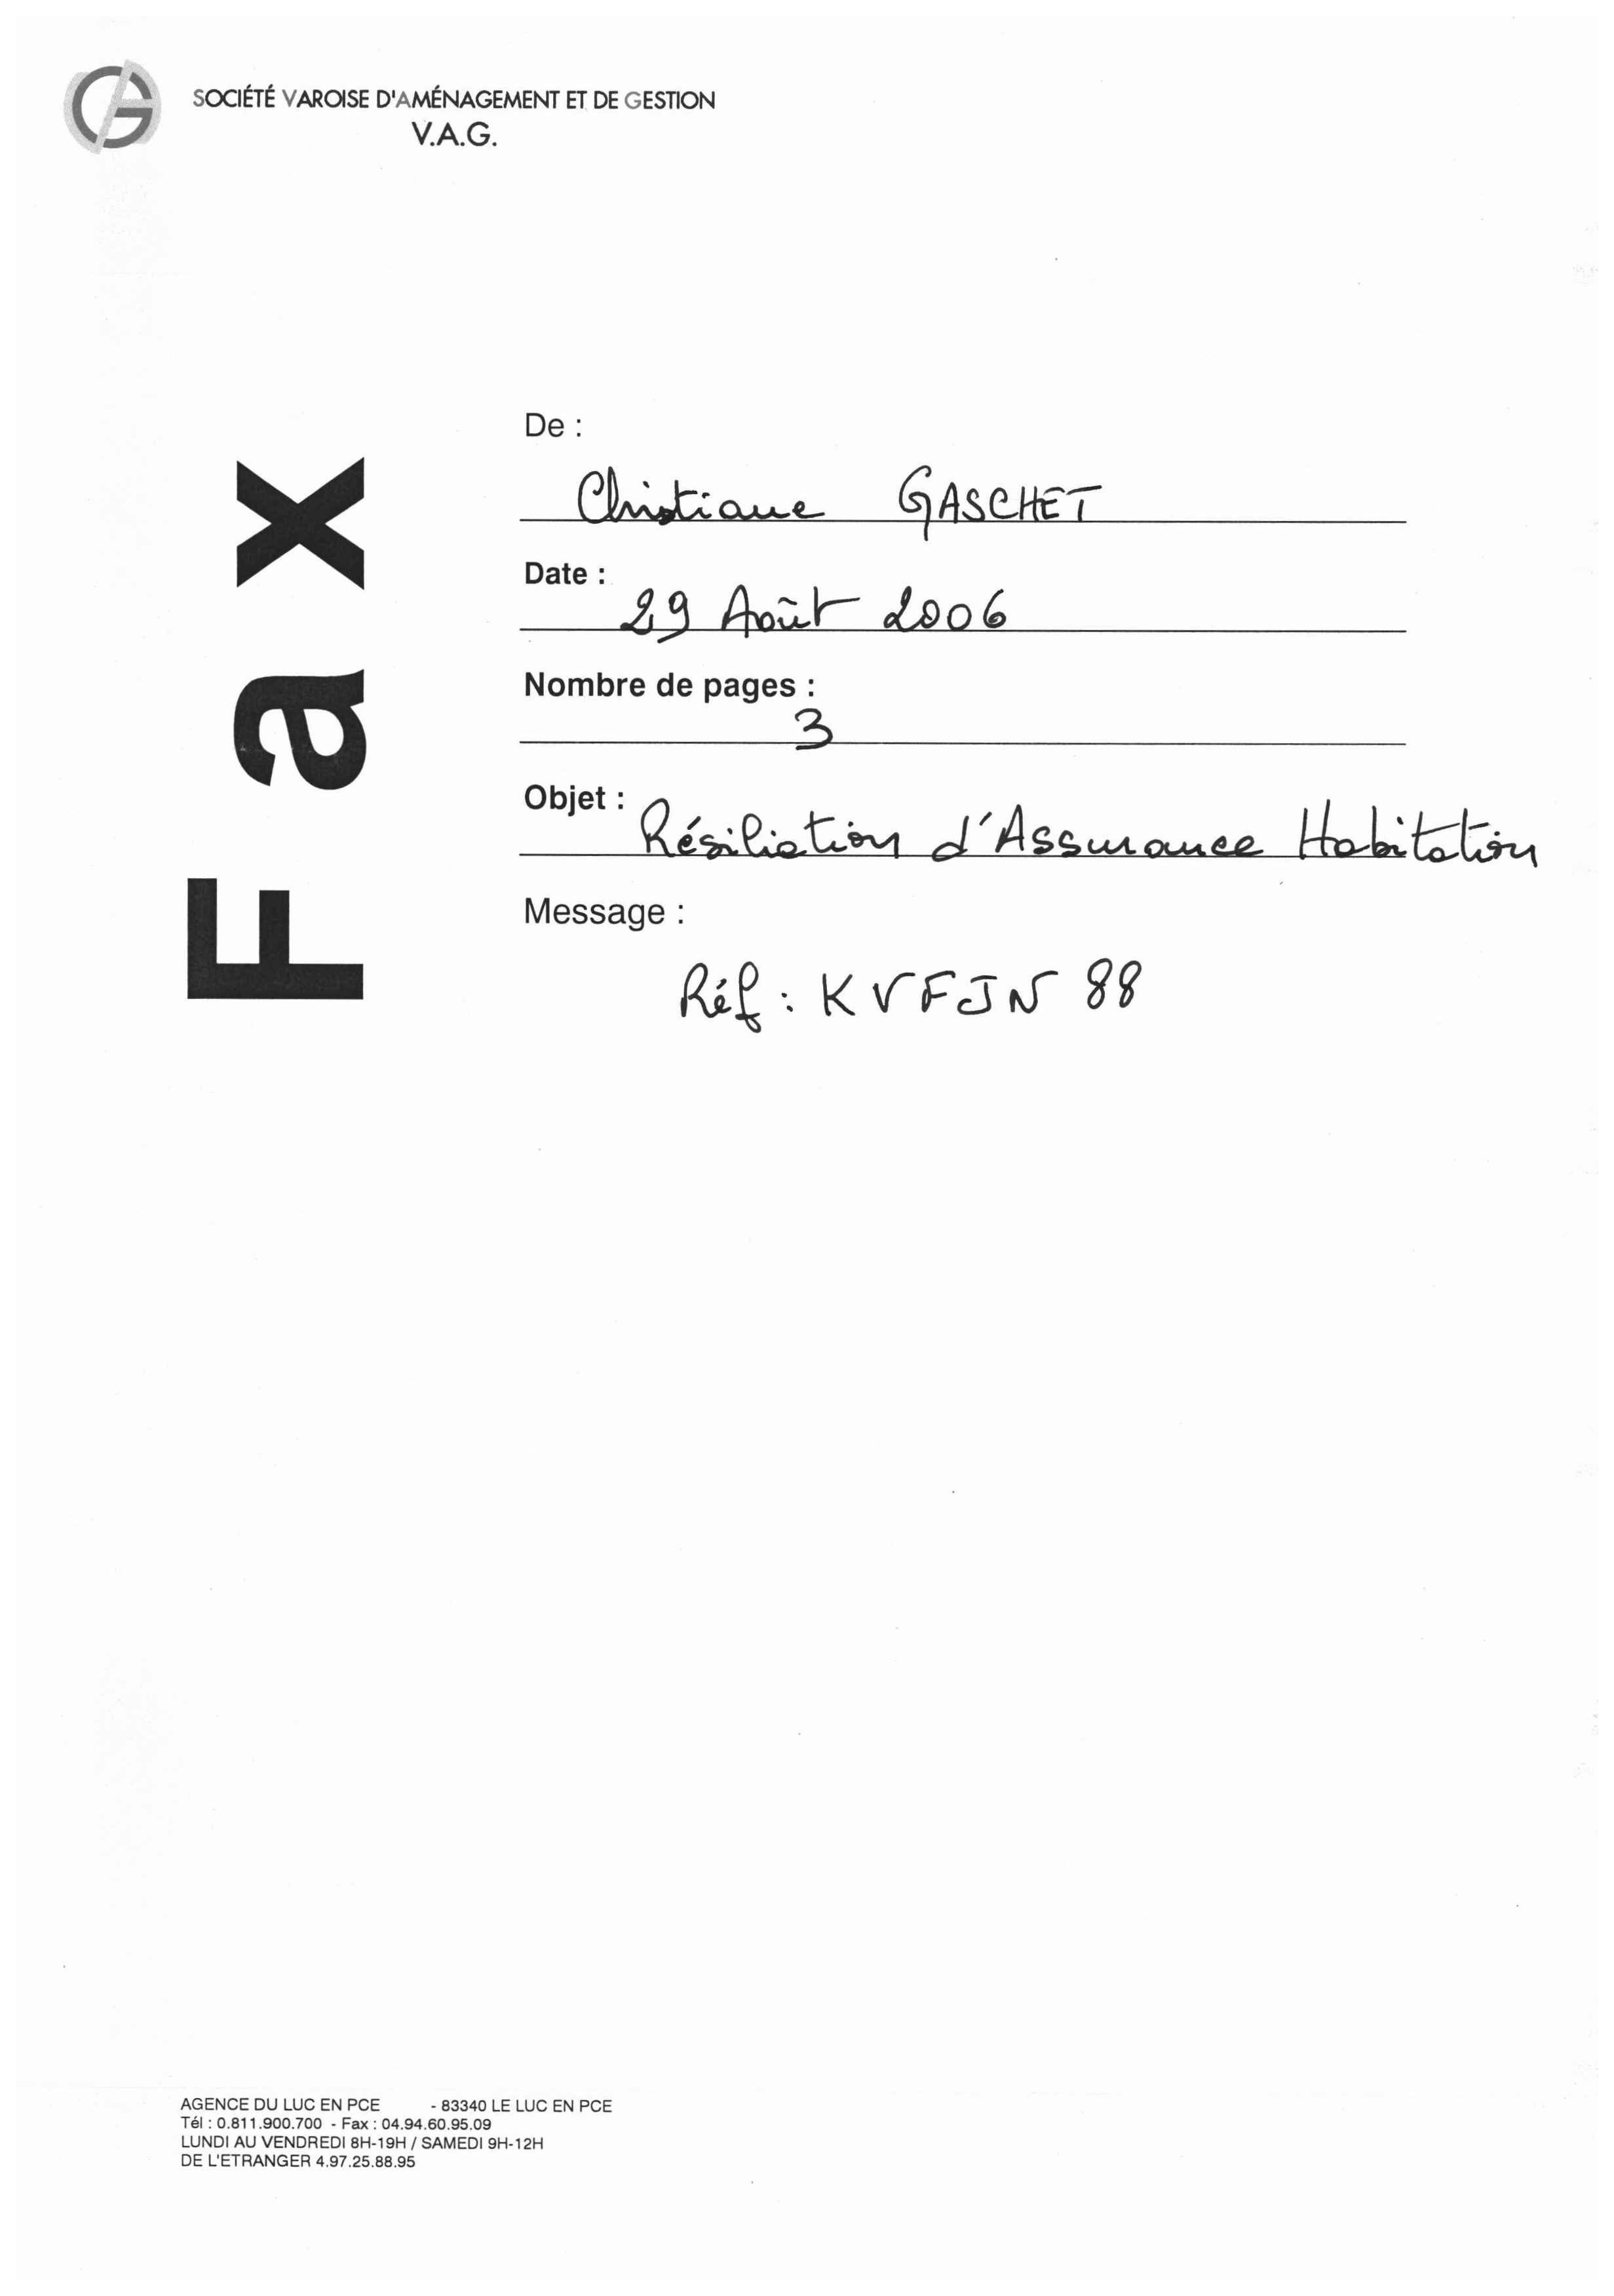 SOCIÉTÉ VAROISE D'AMÉNAGEMENT ET DE GESTION
V.A.G.
Fax
De :
Christiane GASCHET
Date :
29 Août 2006
Nombre de pages :
3
Objet :
Résiliation d'Assurance Habitation
Message :
Réf : KVFJN 88
AGENCE DU LUC EN PCE - 83340 LE LUC EN PCE
Tél : 0.811.900.700 - Fax : 04.94.60.95.09
LUNDI AU VENDREDI 8H-19H / SAMEDI 9H-12H
DE L'ETRANGER 4.97.25.88.95